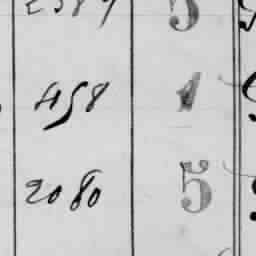 2389 5
458 1
2080 5